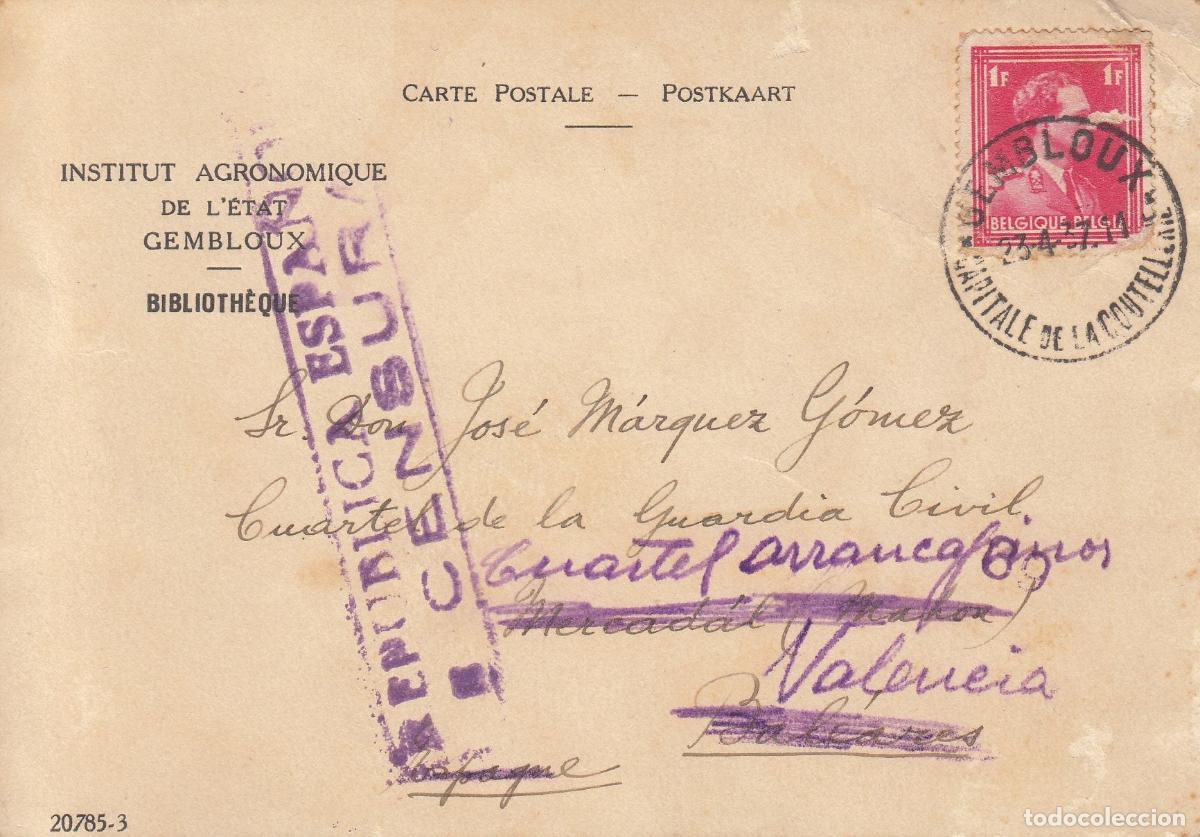 CARTE POSTALE — POSTKAART
INSTITUT AGRONOMIQUE
DE L'ÉTAT
GEMBLOUX
BIBLIOTHÈQUE
1F 1F
BELGIQUE-BELGIË
GEMBLOUX
23-4-37.11
CAPITALE DE LA COUTELLERIE
REPUBLICA ESPAÑ
CENSURA
Sr. Don José Márquez Gómez
Cuartel de la Guardia Civil
Cuartel arrancapinos
Mercadál (Mahon)
Valencia
Baléares
Espagne
20.785-3
todocoleccion